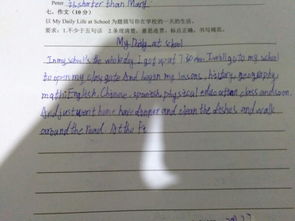 Peter is shorter than Mary.
七、作文(10分)
以 My Daily Life at School 为题描写你在学校的一天的生活。
要求:1.不少于五句话 2.条理清楚,意思连贯,标点正确,书写规范。
My Daily at school
In my school's the whole day. I got up at 7:30 am. I will go to my school
to open my class gate And began my lessons, history, geography
math English, Chinese, spanish, physical education class and soon.
And just went home have dinner and clean the dishes and walk
around the road. At the